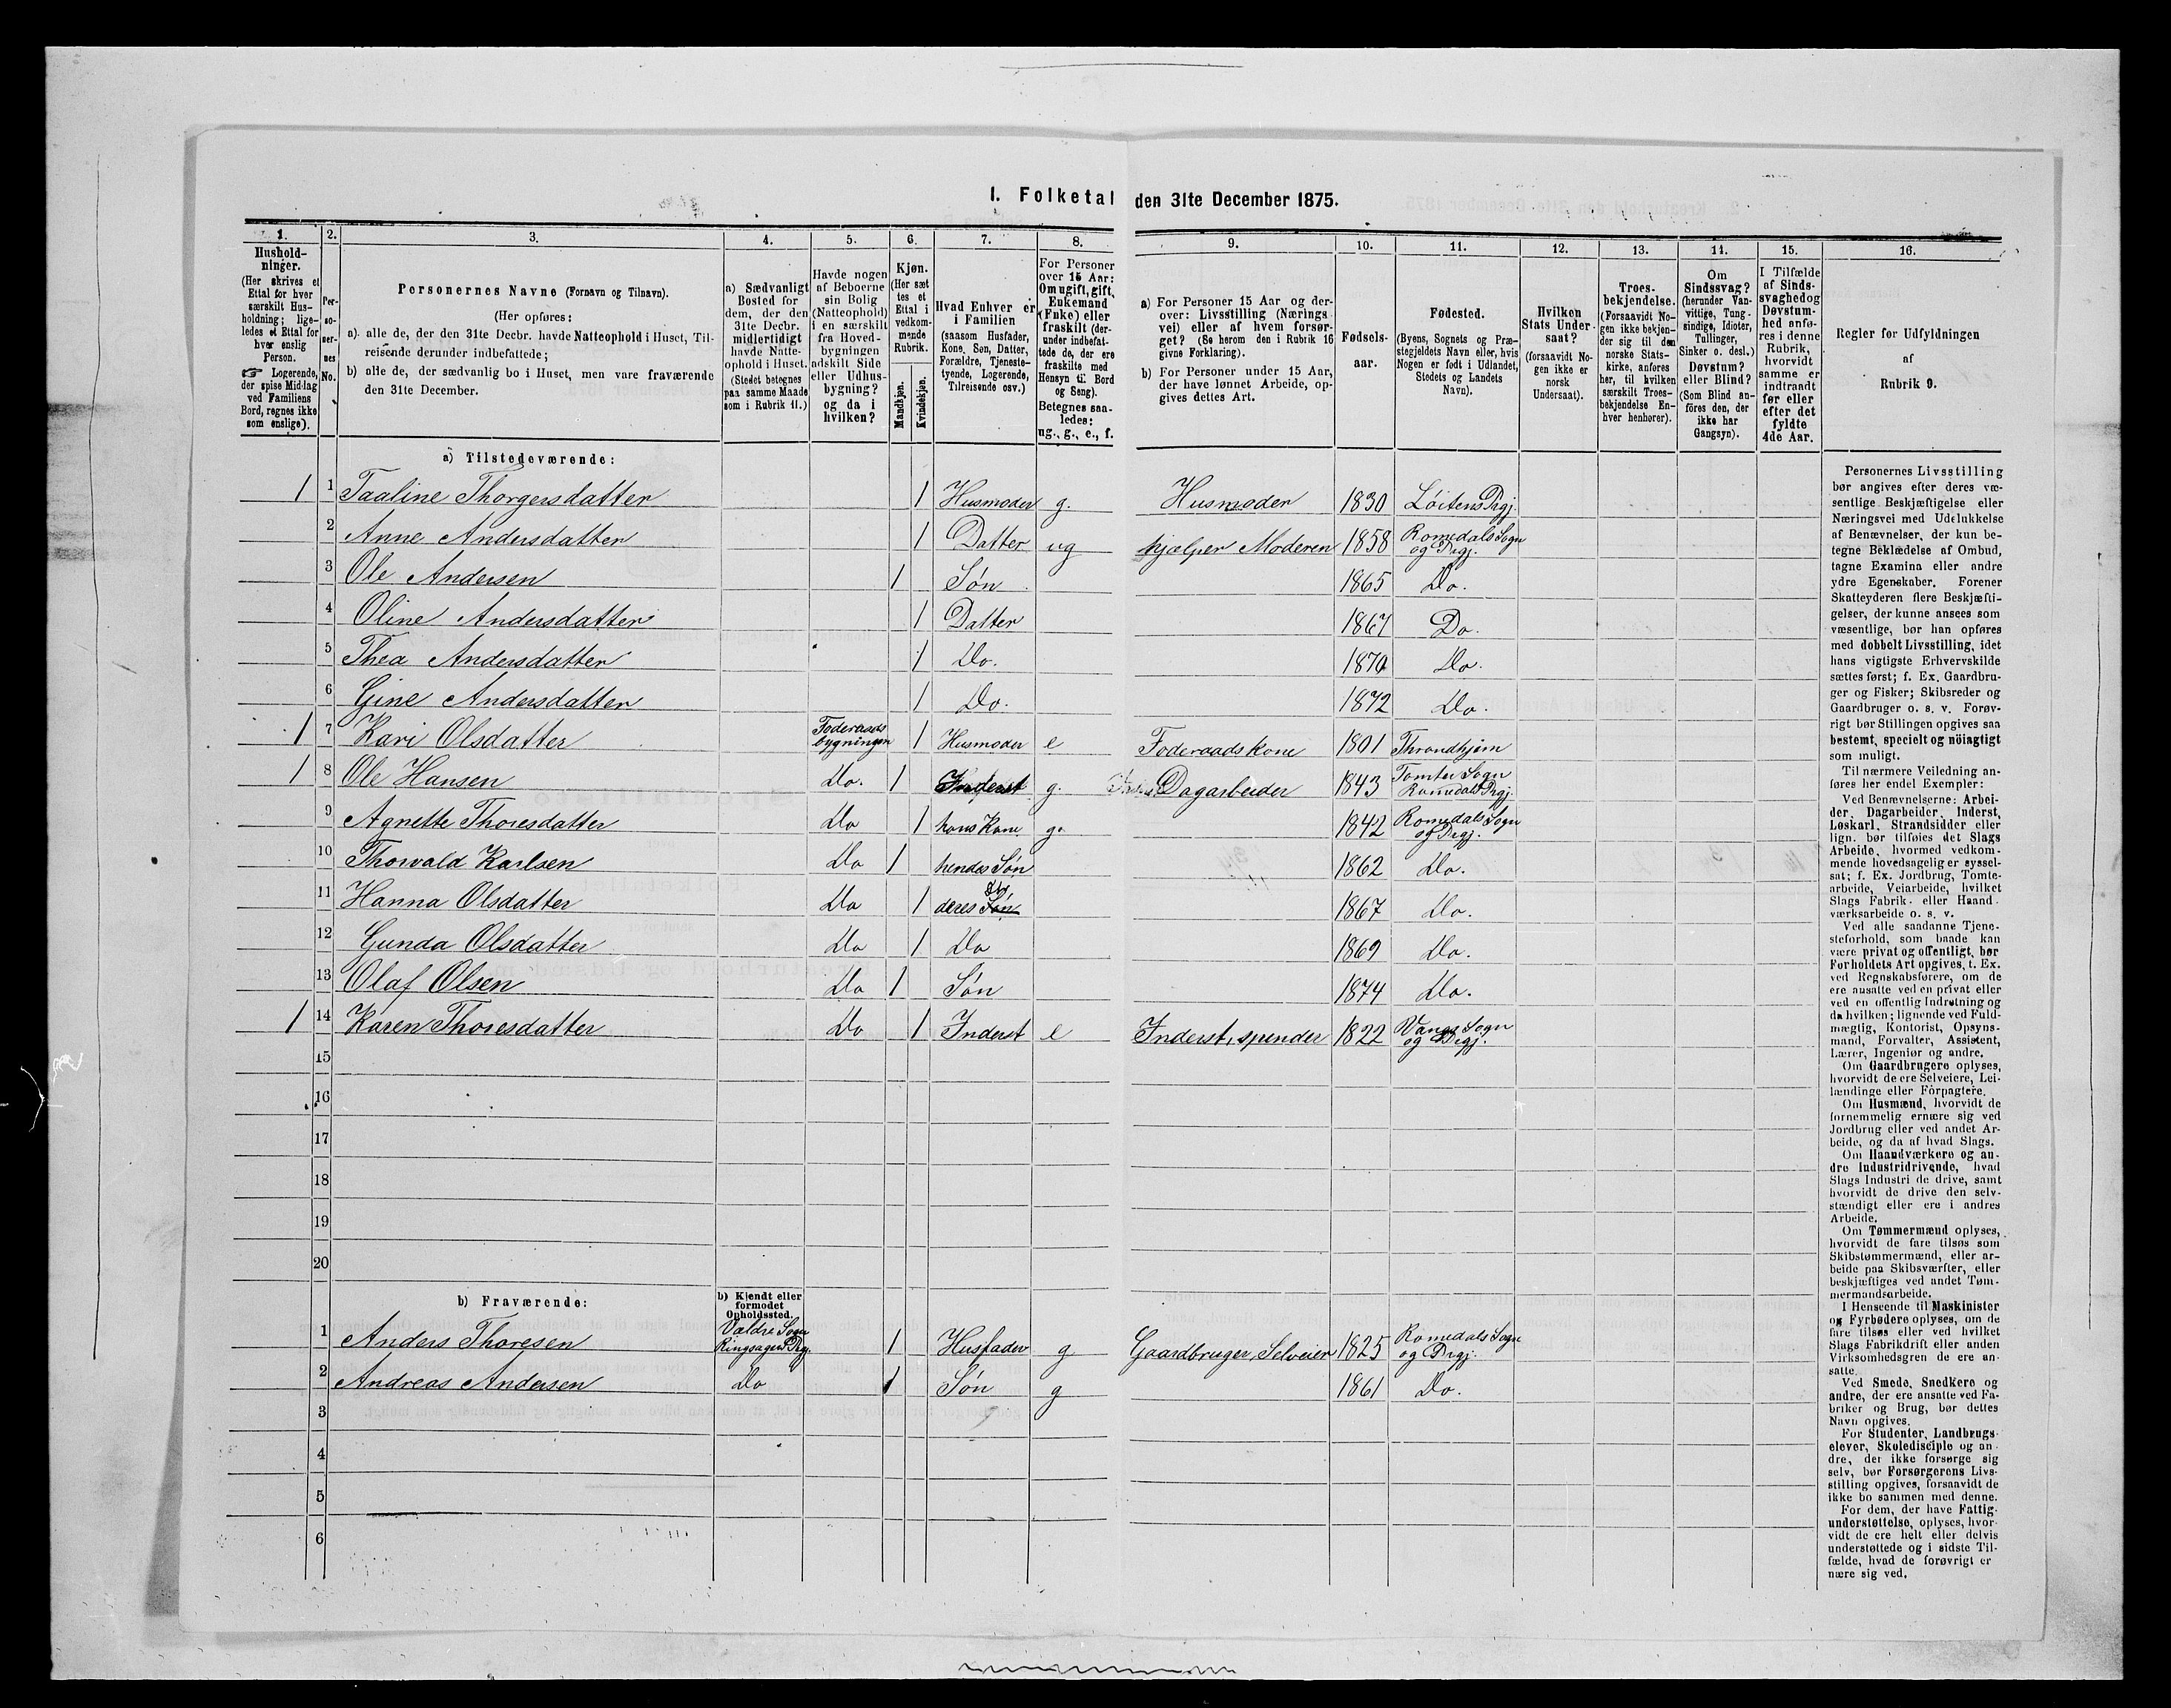 I. Folketal den 31te December 1875.
1. 2. 3. 4. 5. 6. 7. 8. 9. 10. 11. 12. 13. 14. 15. 16.
Hushold-
ninger.
(Her skrives et
Ettal for hver
særskilt Hus-
holdning; lige-
ledes et Ettal for
hver enslig
Person.
☞ Logerende,
der spise Middag
ved Familiens
Bord, regnes ikke
som enslige).
Per-
so-
ner-
nes
No.
Personernes Navne (Fornavn og Tilnavn).
(Her opføres:
a). alle de, der den 31te Decbr. havde Natteophold i Huset, Til-
reisende derunder indbefattede;
b) alle de, der sædvanlig bo i Huset, men vare fraværende
den 31te December.
a) Sædvanligt
Bosted for
dem, der den
31te Decbr.
midlertidigt
havde Natte-
ophold i Huset.
(Stedet betegnes
paa samme Maade
som i Rubrik 11.)
Havde nogen
af Beboerne
sin Bolig
(Natteophold)
i en særskilt
fra Hoved-
bygningen
adskilt Side
eller Udhus-
bygning?
og da i
hvilken?
Kjøn.
(Her sæt
tes et
Ettal i
vedkom-
mende
Rubrik.
Mandkjøn.
Kvindekjøn.
Hvad Enhver er
i Familien
(saasom Husfader,
Kone, Søn, Datter,
Forældre, Tjeneste-
tyende, Logerende,
Tilreisende osv.)
For Personer
over 15 Aar:
Om ugift, gift,
Enkemand
(Enke) eller
fraskilt (der-
under indbefat-
tede de, der ere
fraskilte med
Hensyn til Bord
og Seng).
Betegnes saa-
ledes:
ug., g., e., f.
a) For Personer 15 Aar og der-
over: Livsstilling (Nærings
vei) eller af hvem forsør-
get? (Se herom den i Rubrik 16
givne Forklaring).
b) For Personer under 15 Aar,
der have lønnet Arbeide, op-
gives dettes Art.
Fødsels-
aar.
Fødested.
(Byens, Sognets og Præ-
stegjeldets Navn eller, hvis
Nogen er født i Udlandet,
Stedets og Landets
Navn).
Hvilken
Stats Under-
saat?
(forsaavidt No-
gen ikke er
norsk
Undersaat).
Troes-
bekjendelse.
(Forsaavidt No-
gen ikke bekjen-
der sig til den
norske Stats-
kirke, anføres
her, til hvilken
særskilt Troes-
bekjendelse En-
hver henhører).
Om
Sindssvag?
(herunder Van-
vittige, Tung-
sindige, Idioter,
Tullinger,
Sinker o. desl.)
Døvstum?
eller Blind?
(Som Blind an-
føres den, der
ikke har
Gangsyn).
I Tilfælde
af Sinds-
svaghed og
Døvstum-
hed anfø-
res i denne
Rubrik,
hvorvidt
samme er
indtraadt
før eller
efter det
fyldte
4de Aar.
Regler for Udfyldningen
af
Rubrik 9.
a) Tilstedeværende:
1 1 Taaline Thorgersdatter 1 Husmoder g. Husmoder 1830 Løitens Prgj.
2 Anne Andersdatter 1 Datter ug hjælper Moderen 1858 Romedals Sogn og Prgj.
3 Ole Andersen 1 Søn 1865 Do.
4 Oline Andersdatter 1 Datter 1867 Do.
5 Thea Andersdatter 1 Do. 1870 Do.
6 Gine Andersdatter 1 Do. 1872 Do.
1 7 Kari Olsdatter Foderaads bygningen 1 Husmoder e Foderaadskone 1801 Throndhjem
1 8 Ole Hansen Do. 1 Inderst g. Dagarbeider 1843 Tomter Sogn Romedals Prgj.
9 Agnette Thoresdatter Do 1 hans Kone g. 1842 Romedals Sogn og Prgj.
10 Thorvald Karlsen Do 1 hendes Søn 1862 Do.
11 Hanna Olsdatter Do 1 deres Søn Dtr 1867 Do.
12 Gunda Olsdatter Do 1 Do 1869 Do.
13 Olaf Olsen Do 1 Søn 1874 Do.
1 14 Karen Thoresdatter Do 1 Inderst e Inderst, spinder 1822 Vangs Sogn og Prgj.
15
16
17
18
19
20
b) Fraværende:
b) Kjendt eller
formodet
Opholdssted.
1 Anders Thoresen Valdre Sogn Ringsagers Prgj. 1 Husfader g Gaardbruger, Selveier 1825 Romedals Sogn og Prgj.
2 Andreas Andersen Do 1 Søn g 1861 Do.
3
4
5
6
Personernes Livsstilling
bør angives efter deres væ-
sentlige Beskjæftigelse eller
Næringsvei med Udelukkelse
af Benævnelser, der kun be-
tegne Beklædelse af Ombud,
tagne Examina eller andre
ydre Egenskaber. Forener
Skatteyderen flere Beskjæfti-
gelser, der kunne ansees som
væsentlige, bør han opføres
med dobbelt Livsstilling, idet
hans vigtigste Erhvervskilde
sættes først; f. Ex. Gaardbru-
ger og Fisker; Skibsreder og
Gaardbruger o. s. v. Forøv-
rigt bør Stillingen opgives saa
bestemt, specielt og nöiagtigt
som muligt.
Til nærmere Veiledning an-
føres her endel Exempler:
Ved Benævnelserne: Arbei-
der, Dagarbeider, Inderst,
Løskarl, Strandsidder eller
lign. bør tilføies det Slags
Arbeide, hvormed vedkom-
mende hovedsagelig er syssel-
sat; f. Ex. Jordbrug, Tomte-
arbeide, Veiarbeide, hvilket
Slags Fabrik- eller Haand-
værksarbeide o. s. v.
Ved alle saadanne Tjene-
steforhold, som baade kan
være privat og offentligt, bør
Forholdets Art opgives, t. Ex.
ved Regnskabsførere, om de
ere ansatte ved en privat eller
ved en offentlig Indretning og
da hvilken; lignende ved Fuld-
mægtig, Kontorist, Opsyns-
mand, Forvalter, Assistent,
Lærer, Ingeniør og andre.
Om Gaardbrugere oplyses,
hvorvidt de ere Selveiere, Lei-
lændinge eller Forpagtere.
Om Husmænd, hvorvidt de
fornemmelig ernære sig ved
Jordbrug eller ved andet Ar-
beide, og da af hvad Slags.
Om Haandværkere og an-
dre Industridrivende, hvad
Slags Industri de drive, samt
hvorvidt de drive den selv-
stændigt eller ere i andres
Arbeide.
Om Tømmermænd oplyses,
hvorvidt de fare tilsøs som
Skibstømmermænd, eller ar-
beide paa Skibsværfter, eller
beskjæftiges ved andet Tøm-
mermandsarbeide.
I Henseende til Maskinister
og Fyrbødere oplyses, om de
fare tilsøs eller ved hvilket
Slags Fabrikdrift eller anden
Virksomhedsgren de ere an-
satte.
Ved Smede, Snedkere og
andre, der ere ansatte ved Fa-
briker og Brug, bør dettes
Navn opgives.
For Studenter, Landbrugs-
elever, Skoledisciple og an-
dre, der ikke forsørge sig
selv, bør Forsørgerens Livs-
stilling opgives, forsaavidt de
ikke bo sammen med denne.
For dem, der have Fattig-
understøttelse, oplyses, hvor-
vidt de ere helt eller delvis
understøttede og i sidste Til-
fælde, hvad de forøvrigt er
nære sig ved.